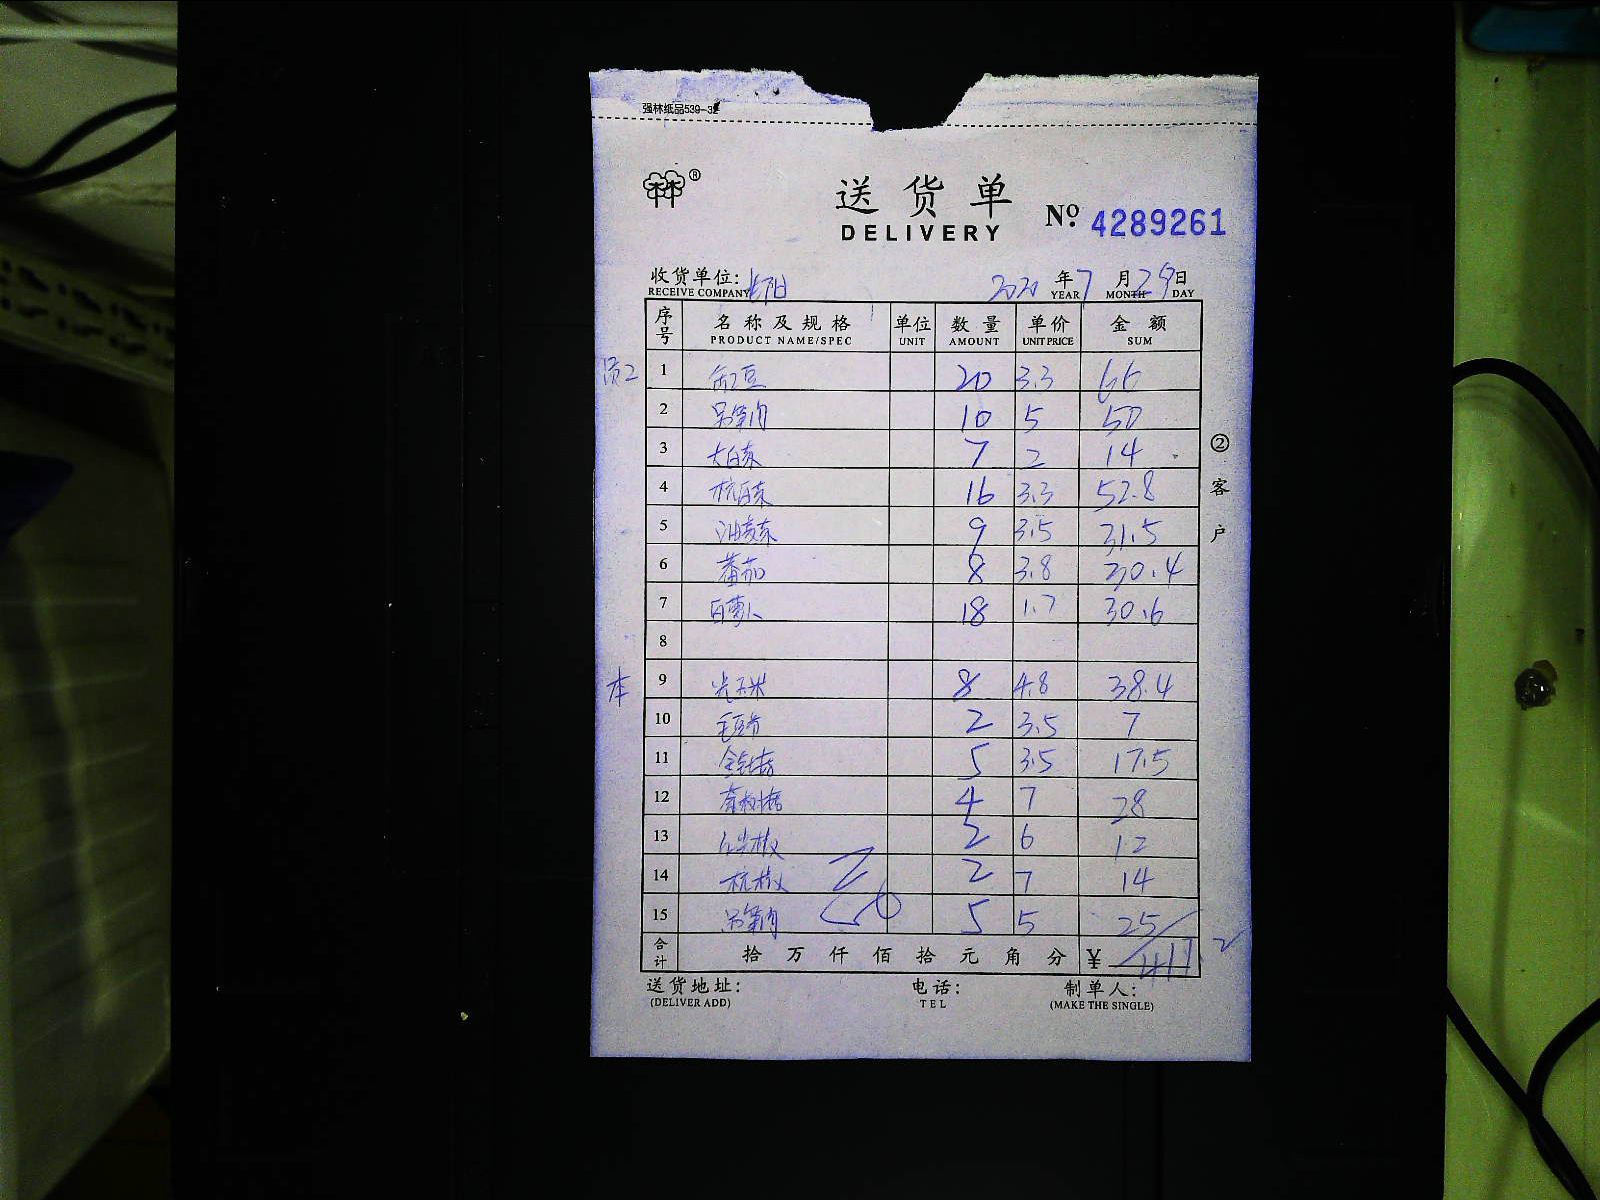 强林纸品539-32
送货单
DELIVERY
No. 4289261
收货单位: 年 月 日
2020 7 29
RECEIVE COMPANY YEAR MONTH DAY
序号 名称及规格 单位 数量 单价 金额
PRODUCT NAME/SPEC UNIT AMOUNT UNIT PRICE SUM
员工 1 缸豆 20 3.3 66
2 10 5 50
3 大白菜 7 2 14
4 杭白菜 16 3.3 52.8
5 油麦菜 9 3.5 31.5
6 番茄 8 3.8 30.4
7 白萝卜 18 1.7 30.6
8
本 9 光玉米 8 4.8 38.4
10 毛豆节 2 3.5 7
11 金针菇 5 3.5 17.5
12 4 7 28
13 尖椒 2 6 12
14 杭椒 2 7 14
15 5 5 25
合计 拾 万 仟 佰 拾 元 角 分 ¥ 417.2
送货地址: 电话: 制单人:
(DELIVER ADD) TEL (MAKE THE SINGLE)
②客户